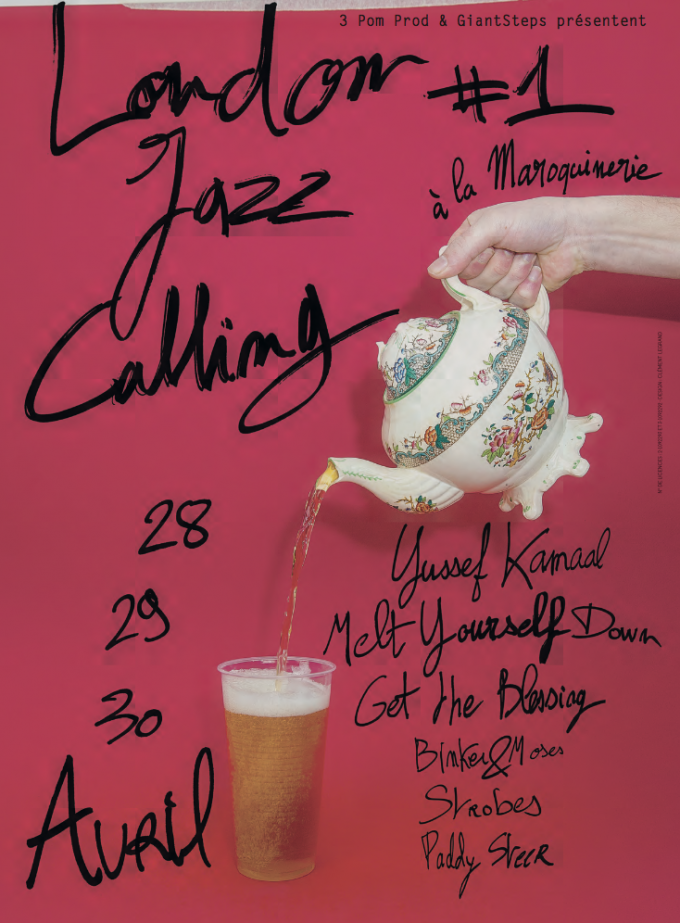 3 Pom Prod & GiantSteps présentent
London #1
Jazz
à la Maroquinerie
Calling
28
29
30
Avril
Yussef Kamaal
Melt Yourself Down
Get the Blessing
Binker & Moses
Strobes
Paddy Steer